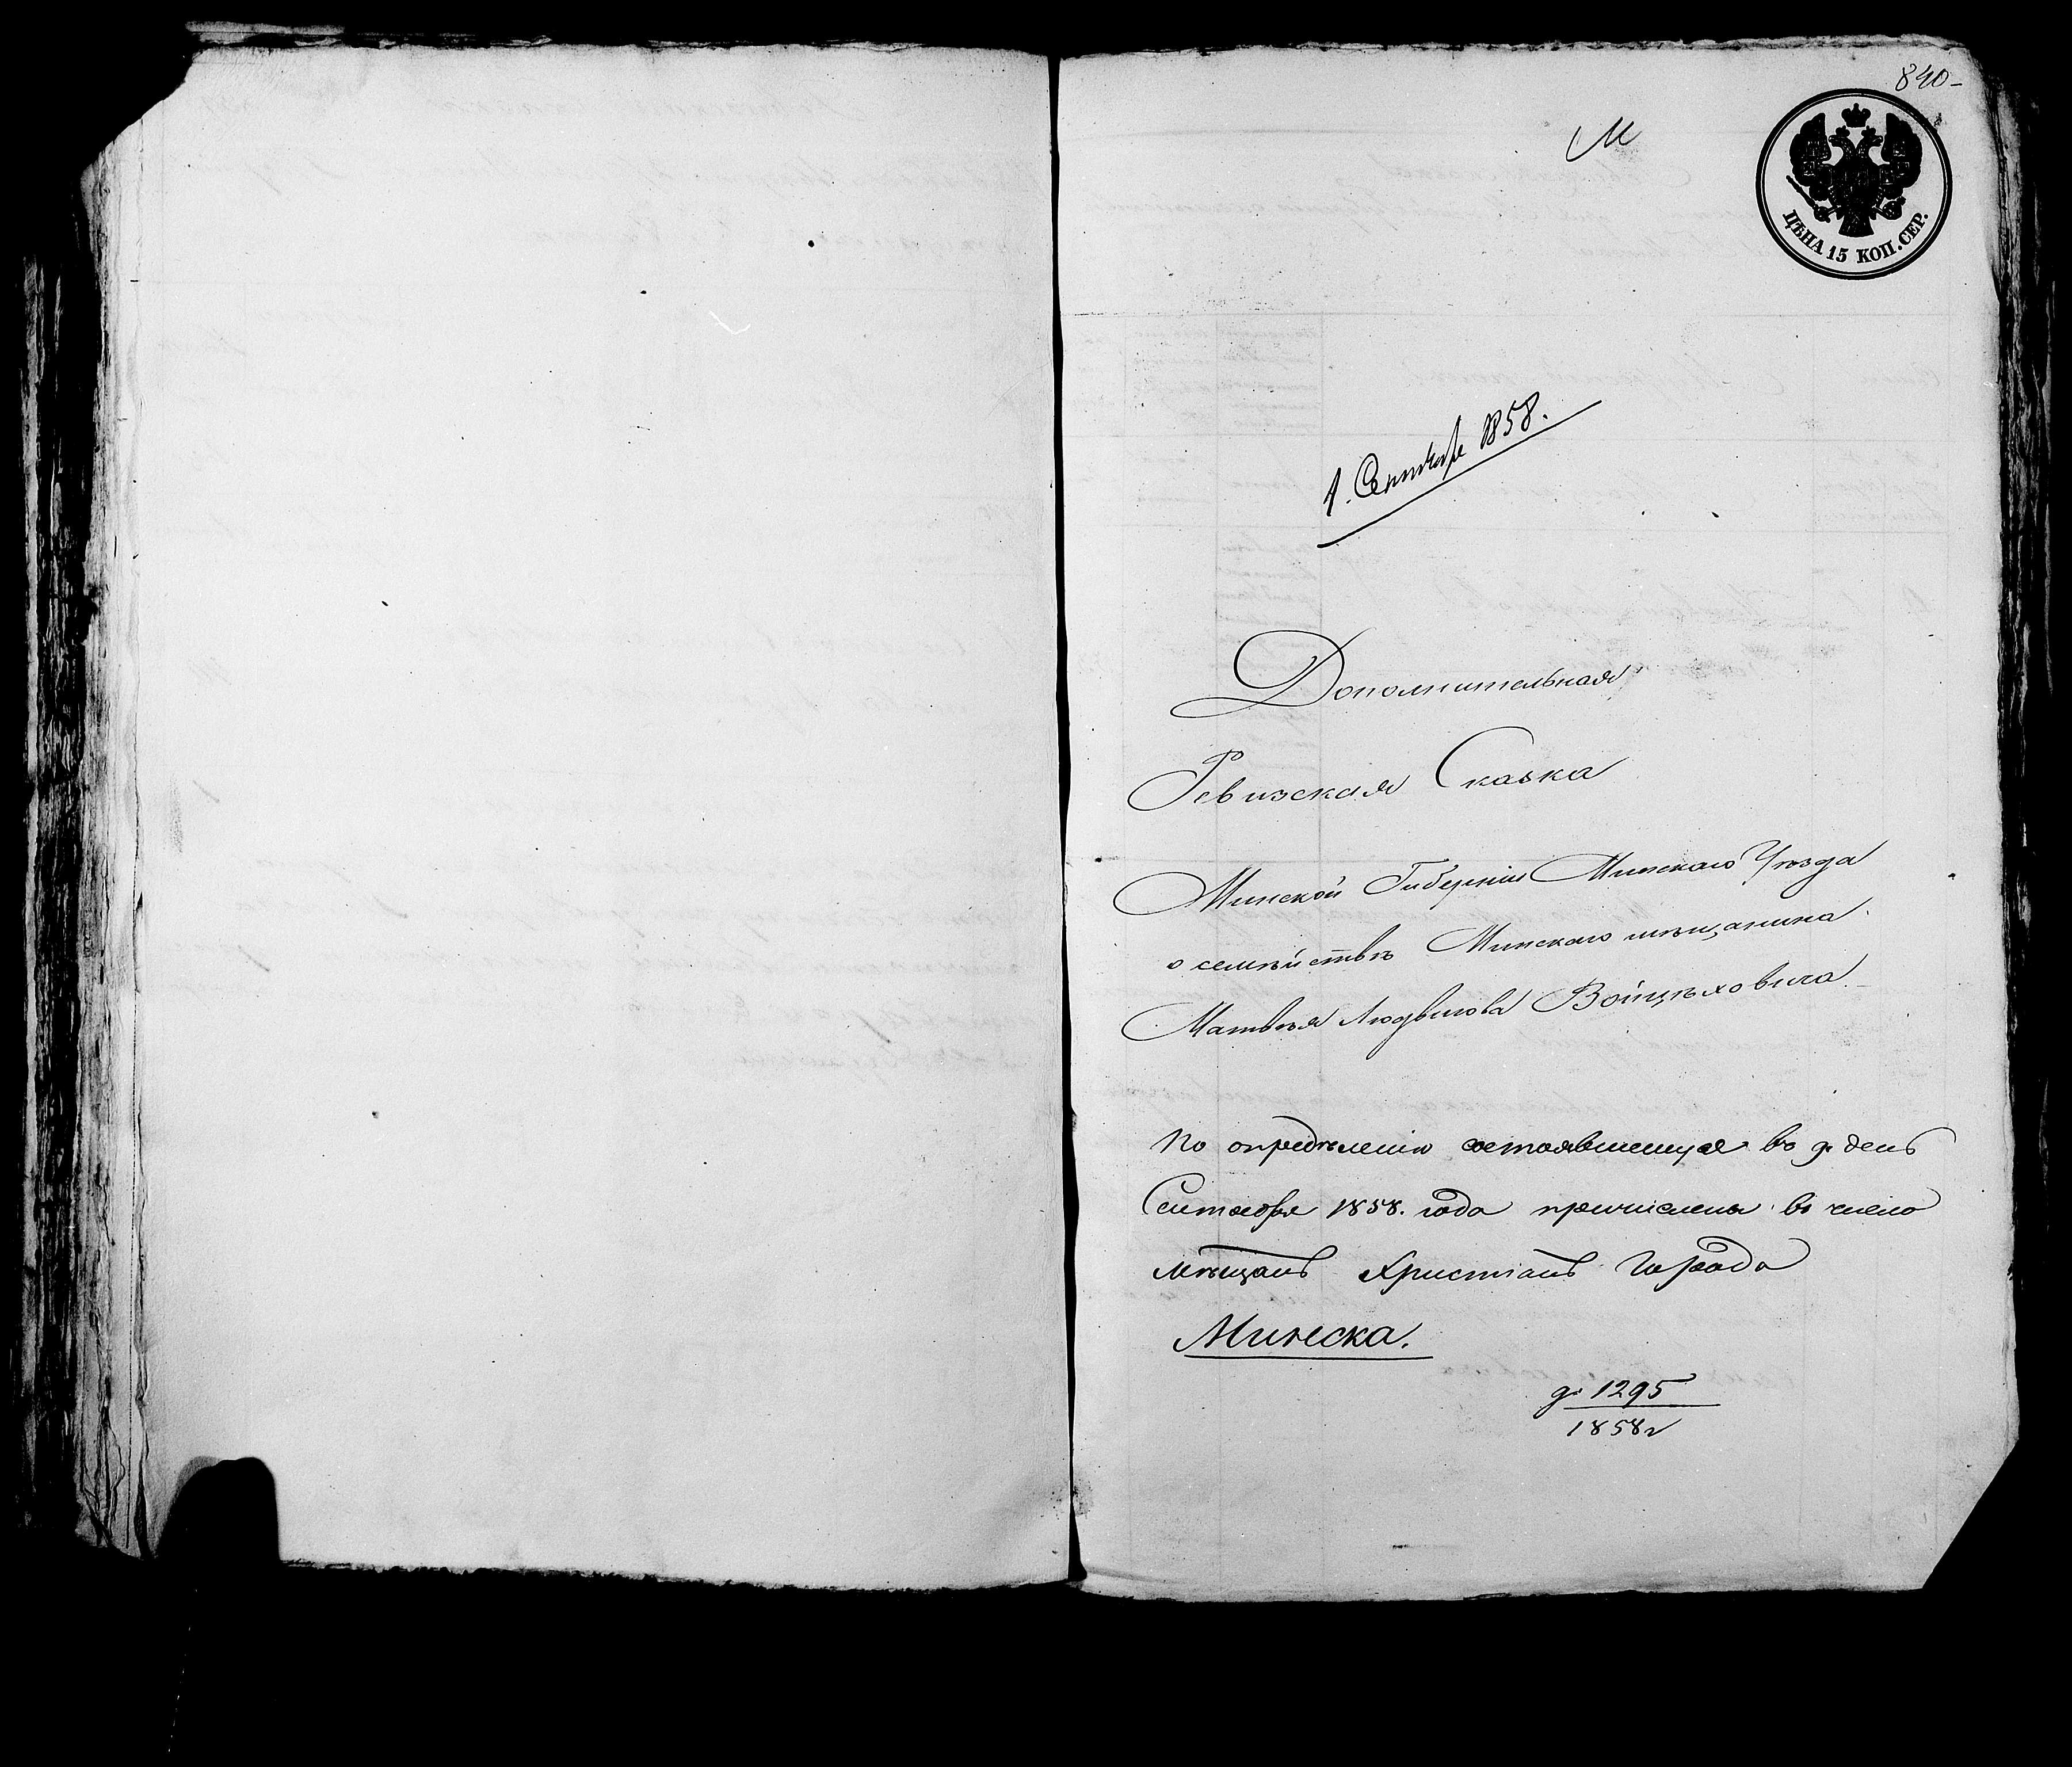 840
М
ЦѢНА 15 КОП. СЕР.
1. Сентября 1858.
Дополнительная
Ревизская Сказка
Минской Губерніи Минскаго Уѣзда
о семѣйствѣ Минскаго мѣщанина
Матвѣя Людвигова Войцѣховича
По опредѣленію состоявшемуся въ день
Сентября 1858. года причислены въ число
мѣщанъ Христіанъ Города
Минска.
1295
1858 г